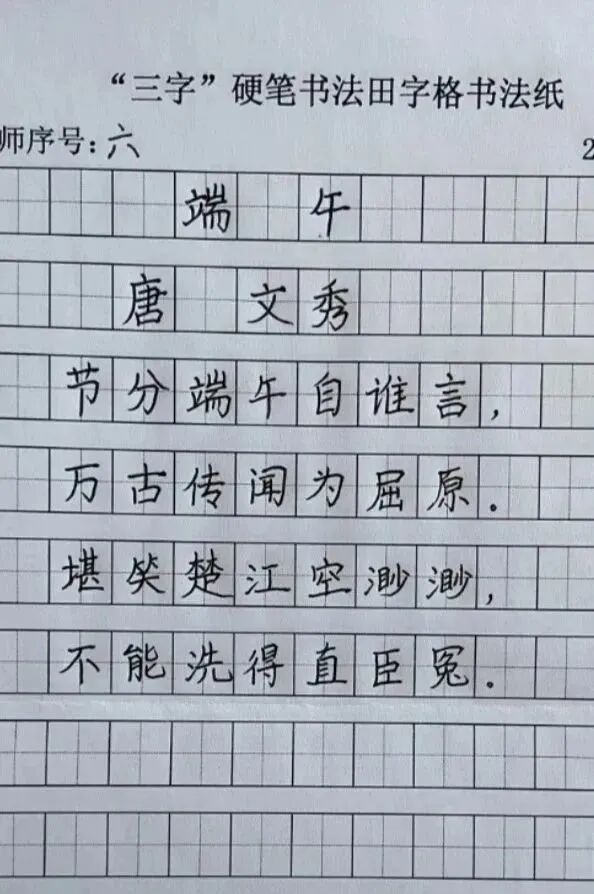 “三字”硬笔书法田字格书法纸
师序号:六 2
端 午
唐 文秀
节分端午自谁言,
万古传闻为屈原.
堪笑楚江空渺渺,
不能洗得直臣冤.